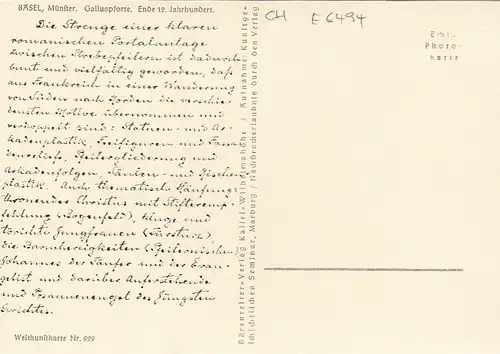 BASEL, Münster. Galluspforte. Ende 12. Jahrhundert.
Die Strenge einer klaren
romanischen Portalanlage
zwischen Strebepfeilern ist dadurch
bunt und vielfältig geworden, daß
aus Frankreich in einer Wanderung
von Süden nach Norden die verschie-
densten Motive übernommen und
verdoppelt sind: Statuen- und Ar-
kadenplastik, Freifiguren und Fassa-
denreliefs, Pfeilergliederung und
Arkadenfolgen, Säulen- und Nischen-
plastik. Auch thematische Häufung:
thronender Christus mit Stifteremp-
fehlung (Bogenfeld), kluge und
törichte Jungfrauen (Türsturz),
die Barmherzigkeiten (Pfeilernischen)
Johannes der Täufer und der Evan-
gelist und darüber Auferstehende
und Posaunenengel des Jüngsten
Gerichtes.
Weltkunstkarte Nr. 959
Bärenreiter-Verlag Kassel-Wilhelmshöhe / Aufnahme: Kunstge-
schichtliches Seminar, Marburg / Nachdruckerlaubnis durch den Verlag
CH E 6494
Echte
Photo-
karte